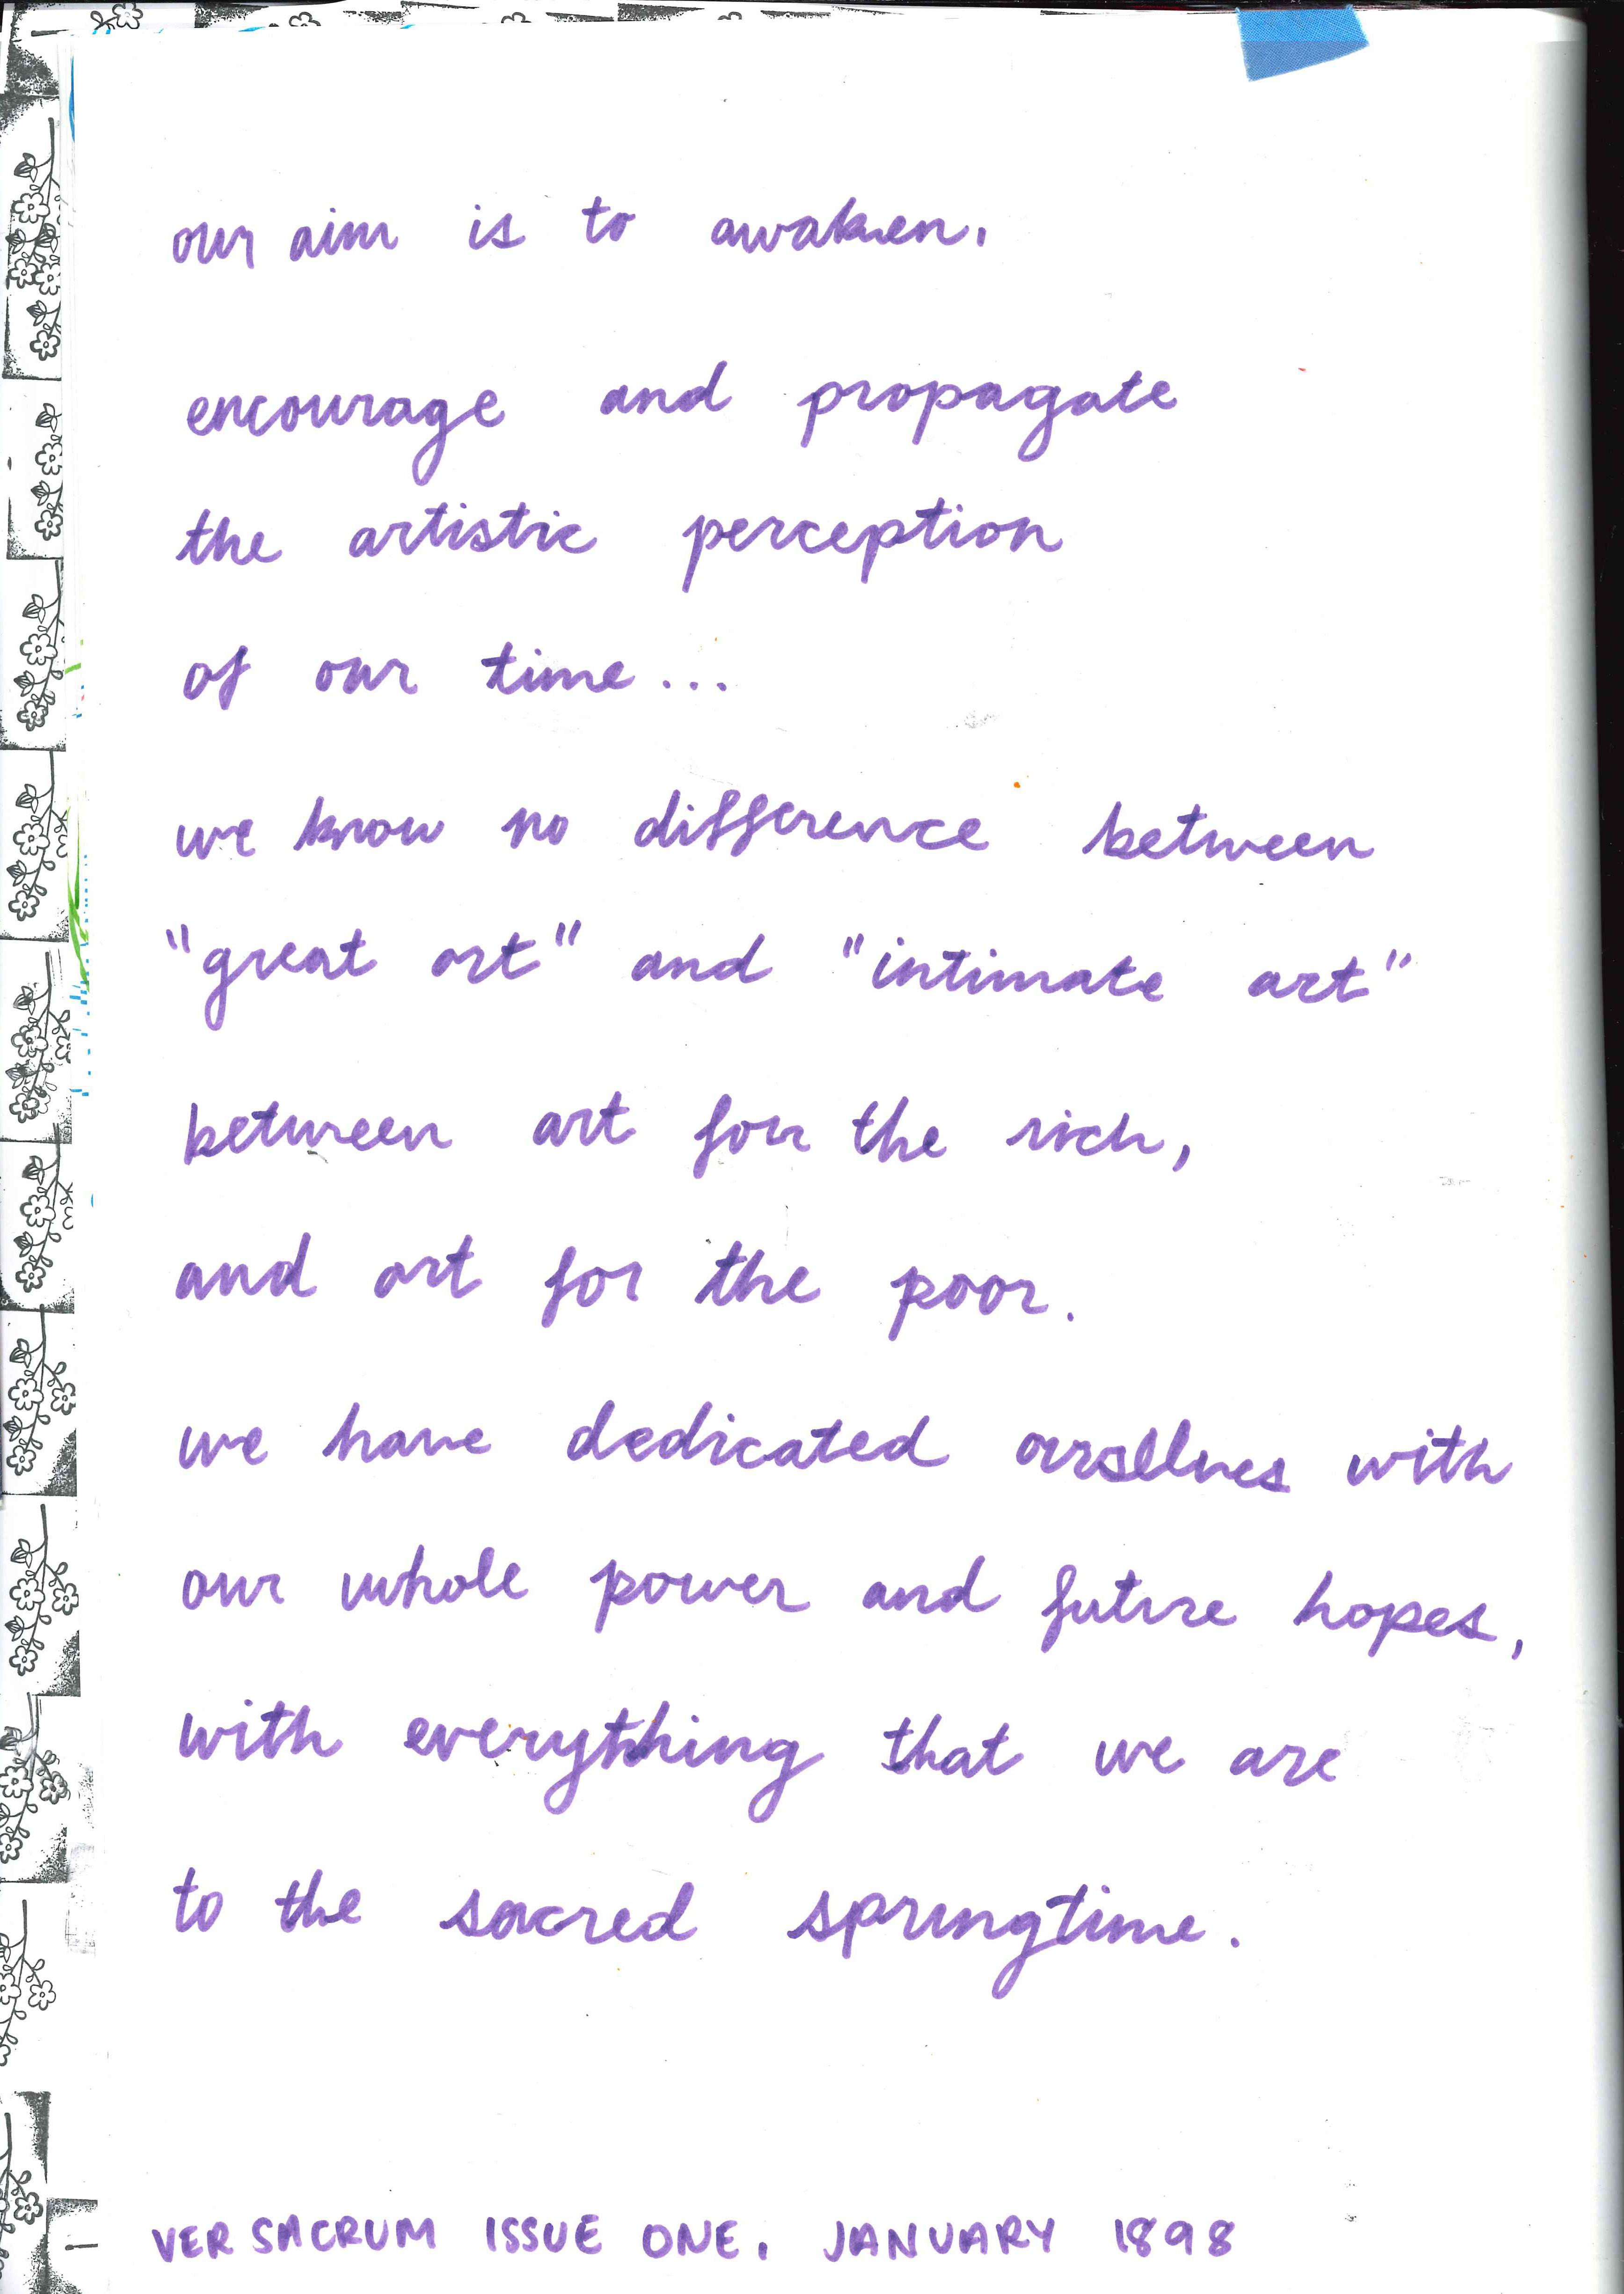 our aim is to awaken,
encourage and propagate
the artistic perception
of our time...
we know no difference between
"great art" and "intimate art"
between art for the rich,
and art for the poor.
we have dedicated ourselves with
our whole power and future hopes,
with everything that we are
to the sacred springtime.
VER SACRUM ISSUE ONE, JANUARY 1898